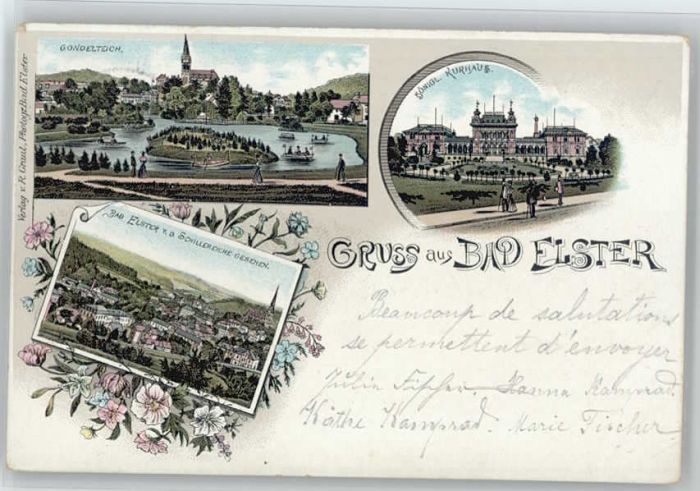 GONDELTEICH.
KÖNIGL. KURHAUS.
Verlag v. R. Graul, Photogr. Bad Elster
BAD ELSTER V. D. SCHILLEREICHE GESEHEN.
GRUSS aus BAD ELSTER
Beaucoup de salutations
se permettent d'envoyer
Julia Hanna Kamprad.
Käthe Kamprad. Marie Fischer